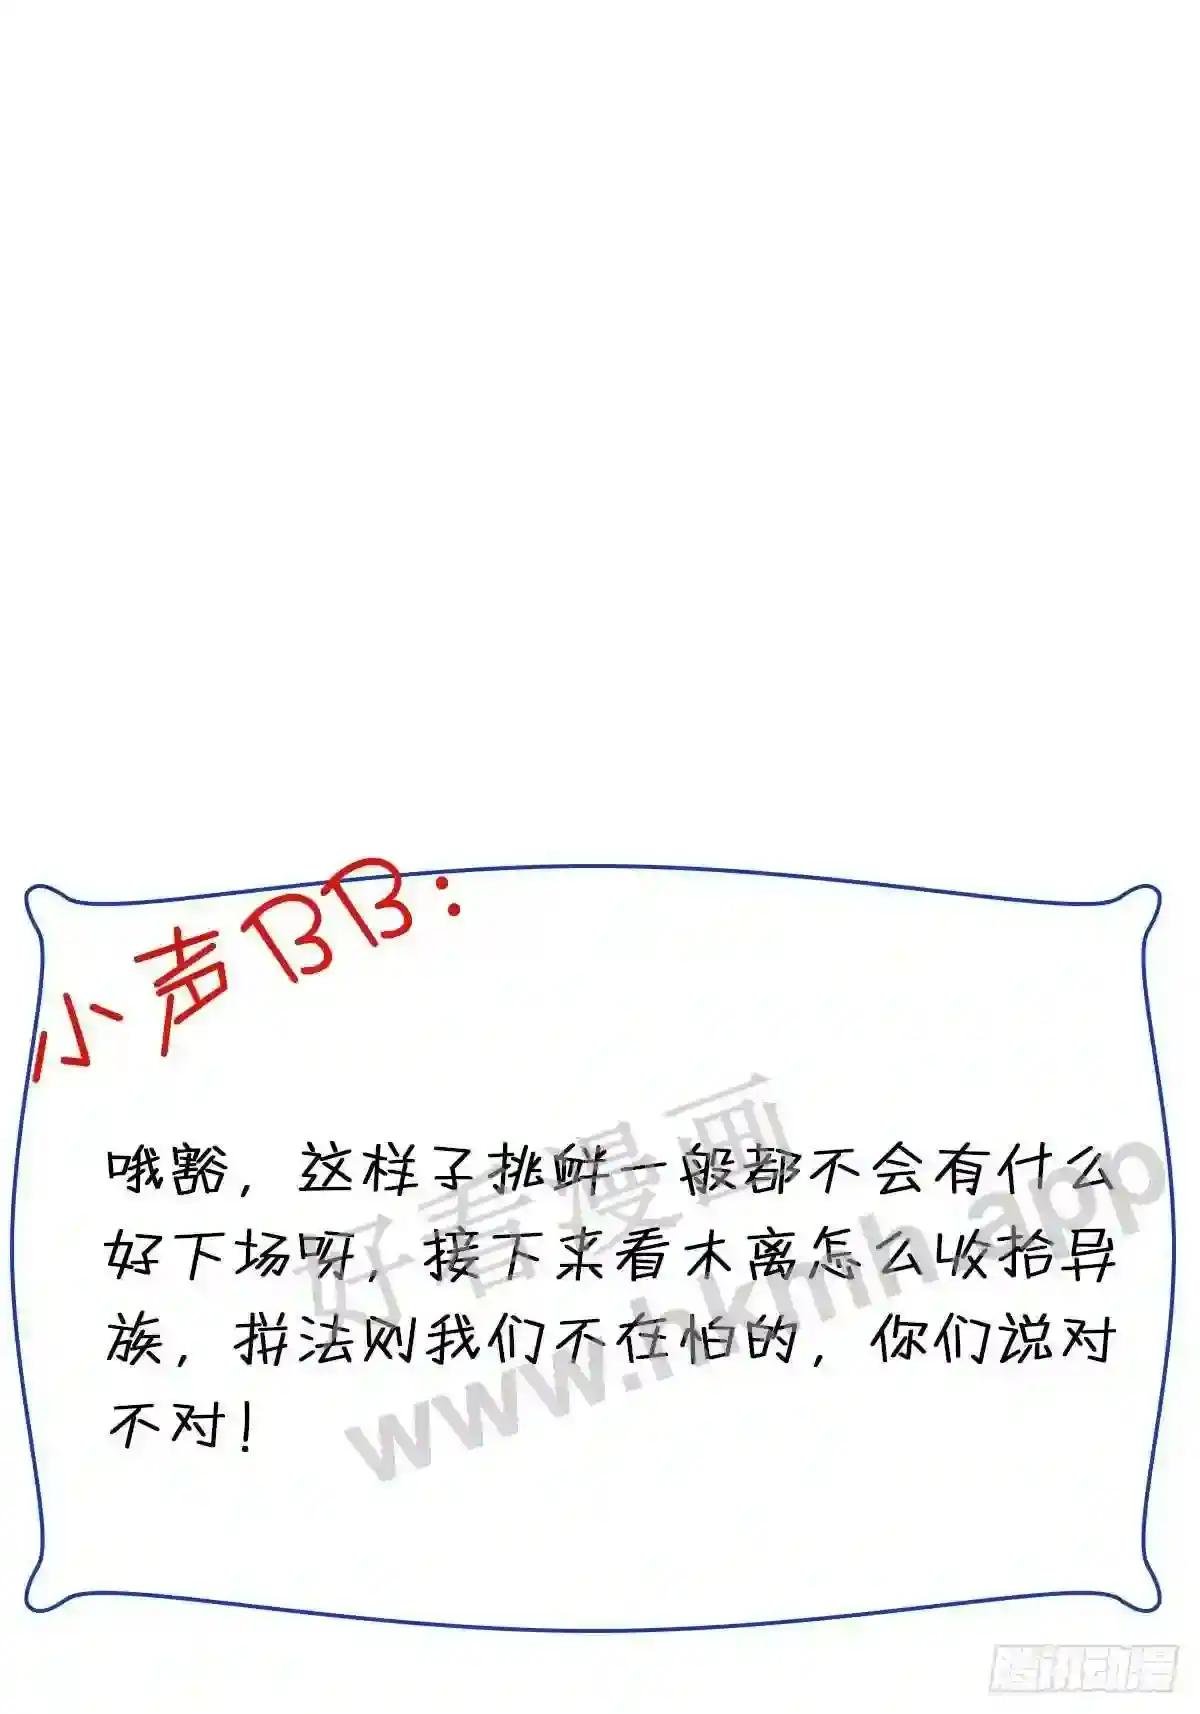 小声BB：
哦豁，这样子挑衅一般都不会有什么
好下场呀，接下来看木离怎么收拾异
族，拼法则我们不在怕的，你们说对
不对！
好看漫画
www.hkmh.app
腾讯动漫